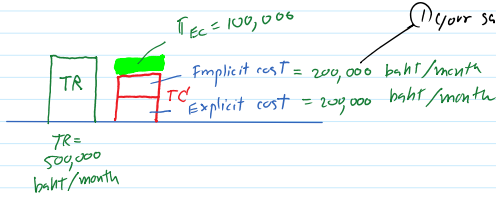 π EC = 100,000
① your sa
TR
TC
Implicit cost = 200,000 baht/month
Explicit cost = 200,000 baht/month
TR =
500,000
baht/month